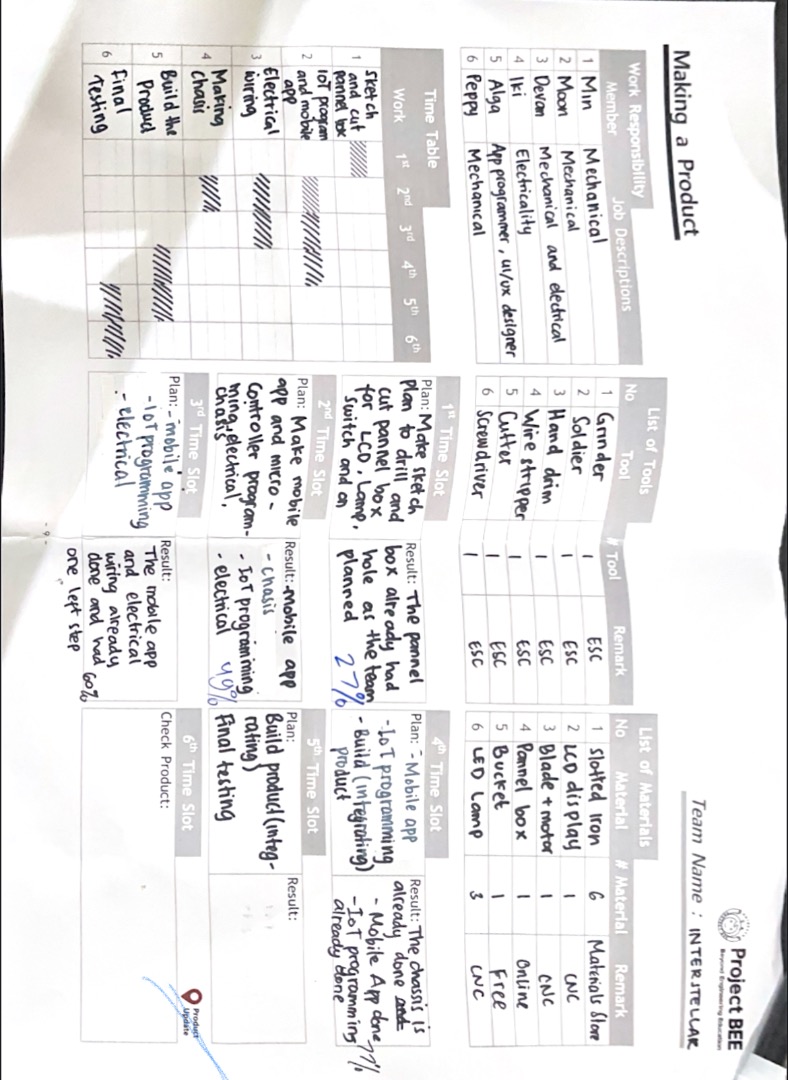 Making a Product
Project BEE
Beyond Engineering Education
Team Name : INTERSTELLAR
Work Responsibility
Member Job Descriptions
1 Min Mechanical
2 Moon Mechanical
3 Devon Mechanical and electrical
4 Iki Electricality
5 Alga App programmer, UI/UX designer
6 Peppy Mechanical
List of Tools
No Tool # Tool Remark
1 Grinder 1 ESC
2 Soldier 1 ESC
3 Hand drim 1 ESC
4 Wire stripper 1 ESC
5 Cutter 1 ESC
6 Screwdriver 1 ESC
List of Materials
No Material # Material Remark
1 Slotted Iron 6 Materials Store
2 LCD display 1 CNC
3 Blade + motor 1 CNC
4 Pannel box 1 Online
5 Bucket 1 Free
6 LED Lamp 3 CNC
Time Table
Work 1st 2nd 3rd 4th 5th 6th
1 Sketch
and cut
pannel box
2 IoT program
and mobile
app
3 Electrical
wiring
4 Making
chasis
5 Build the
Product
6 Final
Testing
1st Time Slot
Plan: Make sketch
plan to drill and
cut pannel box
for LCD, Lamp,
switch and on
Result: The pannel
box already had
hole as the team
planned 27%
2nd Time Slot
Plan: Make mobile
app and micro-
controller program-
ming, electrical,
chasis
Result: -Mobile app
- chasis
- IoT programming
- electrical 49%
3rd Time Slot
Plan: - mobile app
- IoT programming
- electrical
Result:
The mobile app
and electrical
wiring already
done and had
one left step 60%
4th Time Slot
Plan: - Mobile app
- IoT programming
- Build (integrating)
product
Result: The chassis is
already done
- Mobile App done
- IoT programming
already done 77%
5th Time Slot
Plan:
Build product (integ-
rating)
Final testing
Result:
6th Time Slot
Check Product:
Product
Update
- 9 -